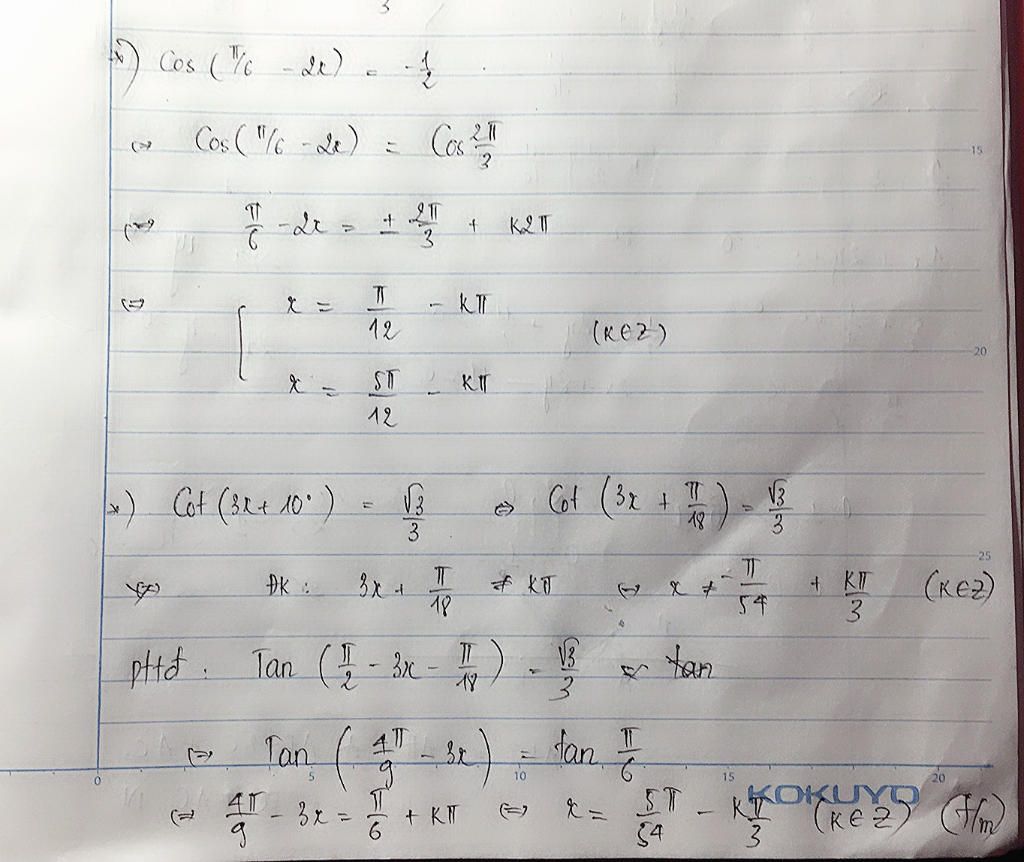 3
*) Cos(π/6 - 2x) = -1/2
⇔ Cos(π/6 - 2x) = Cos 2π/3
⇔ π/6 - 2x = ± 2π/3 + k2π
⇔ [ x = π/12 - kπ
(k∈Z)
x = 5π/12 - kπ
*) Cot(3x + 10°) = √3/3 ⇔ Cot(3x + π/18) = √3/3
ĐK: 3x + π/18 ≠ kπ ⇔ x ≠ -π/54 + kπ/3 (k∈Z)
pttđ: Tan(π/2 - 3x - π/18) = √3/3 = tan
⇔ Tan(4π/9 - 3x) = tan π/6
⇔ 4π/9 - 3x = π/6 + kπ ⇔ x = 5π/54 - kπ/3 (k∈Z) (t/m)
KOKUYO
0 5 10 15 20
15
20
25